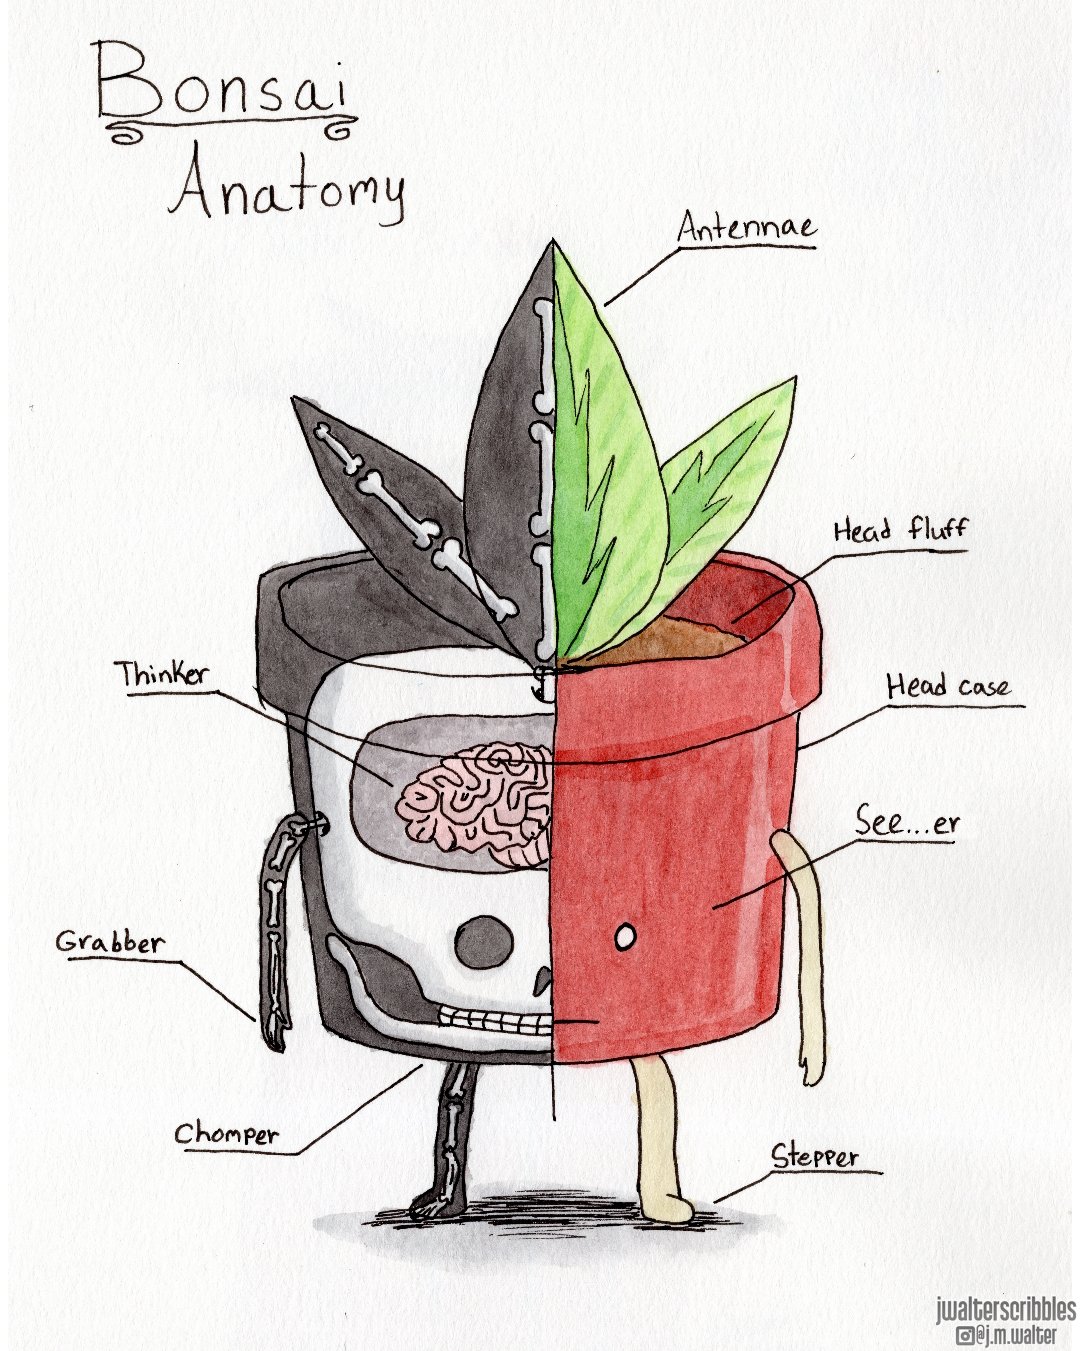 Bonsai
Anatomy
Antennae
Head fluff
Thinker
Head case
See...er
Grabber
Chomper
Stepper
jwalterscribbles
@j.m.walter